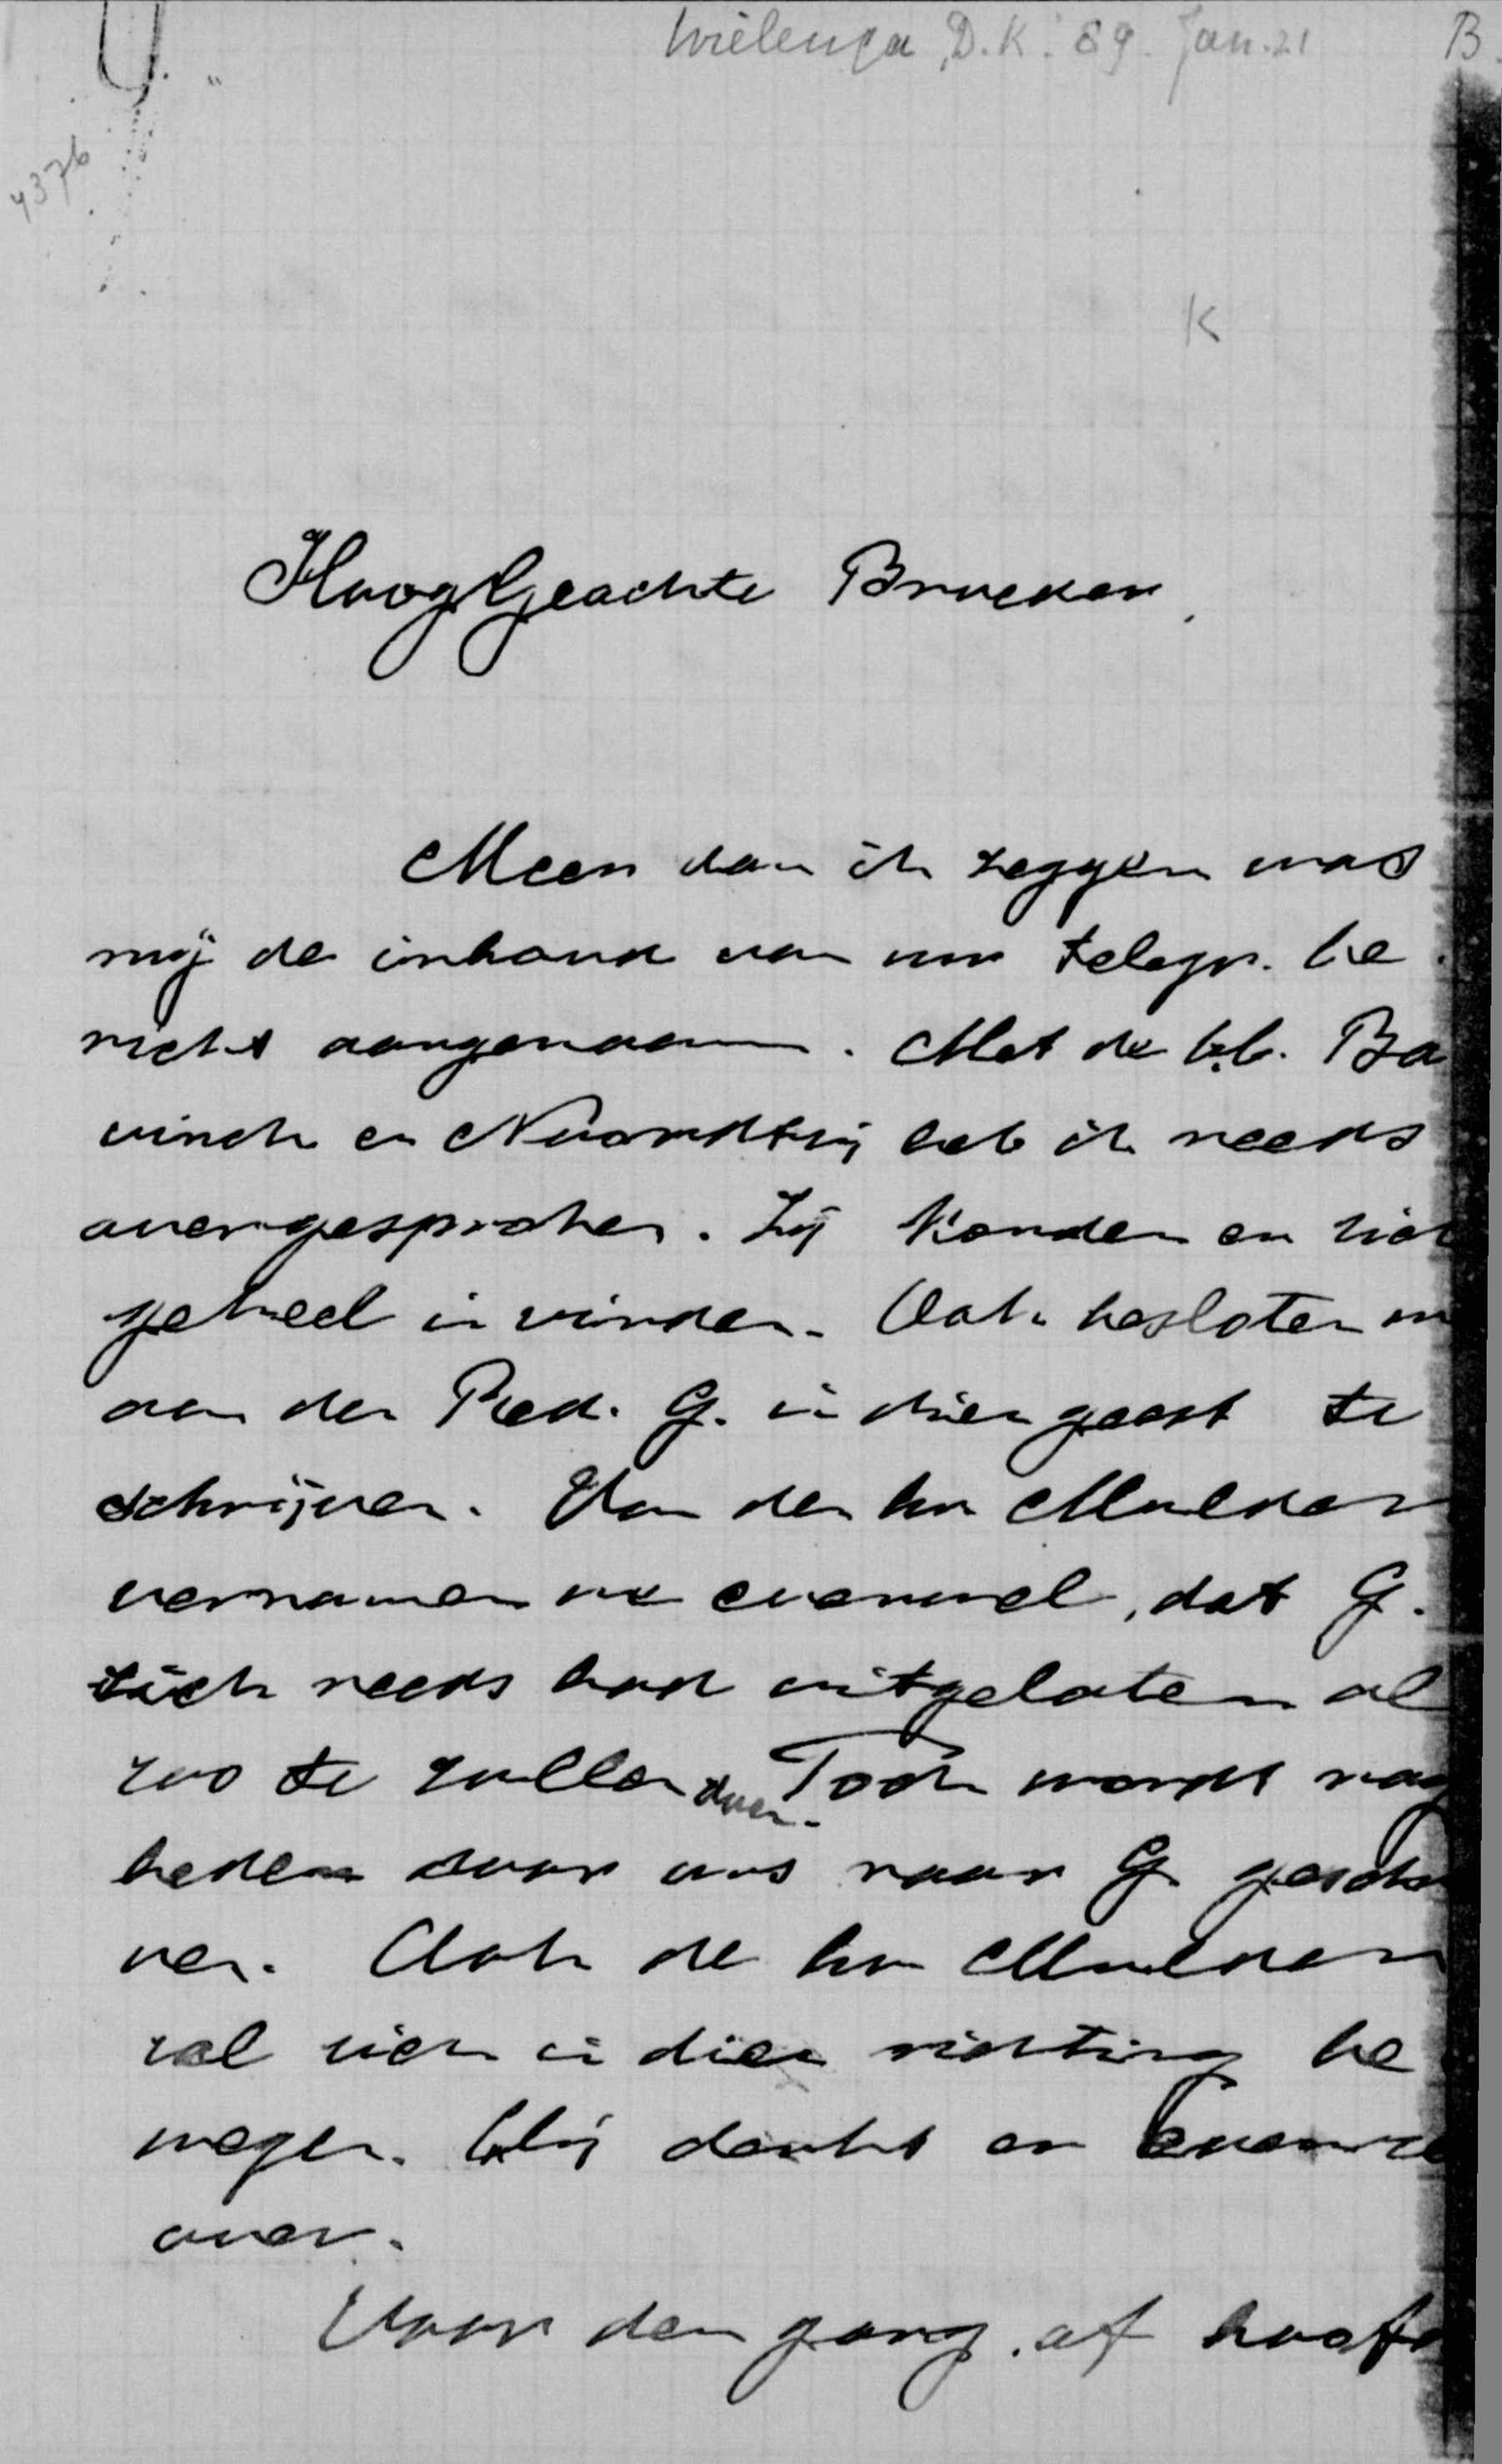 Wielenga, D.K. 89. Jan. 21 B.
4376
K
HoogGeachte Broeder,
Meer dan ik zeggen was
mij de inhoud van uw telegr. be
richt aangenaam. Met de b.b. Ba
vinck en Noordtzij heb ik reeds
overgesproken. Zij konden er zich
geheel in vinden. Ook besloten
aan den Red. G. in dien geest te
schrijven. Van den br Mulder
vernamen we evenwel, dat G.
zich reeds had uitgelaten al
zoo te zullen doen. Toch wordt nog
heden door ons naar G. geschr
ven. Ook de br Mulder
zal zich in dien richting be
wegen. Hij denkt er evenzo
over.
Voor den gang of hoofd